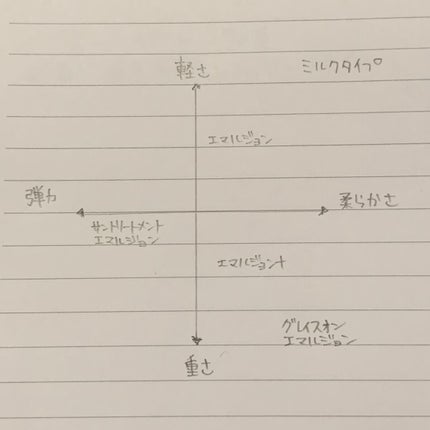 軽さ
ミルクタイプ
エマルジョン
弾力
柔らかさ
サントリートメント
エマルジョン
エマルジョン+
グレイスオン
エマルジョン
重さ